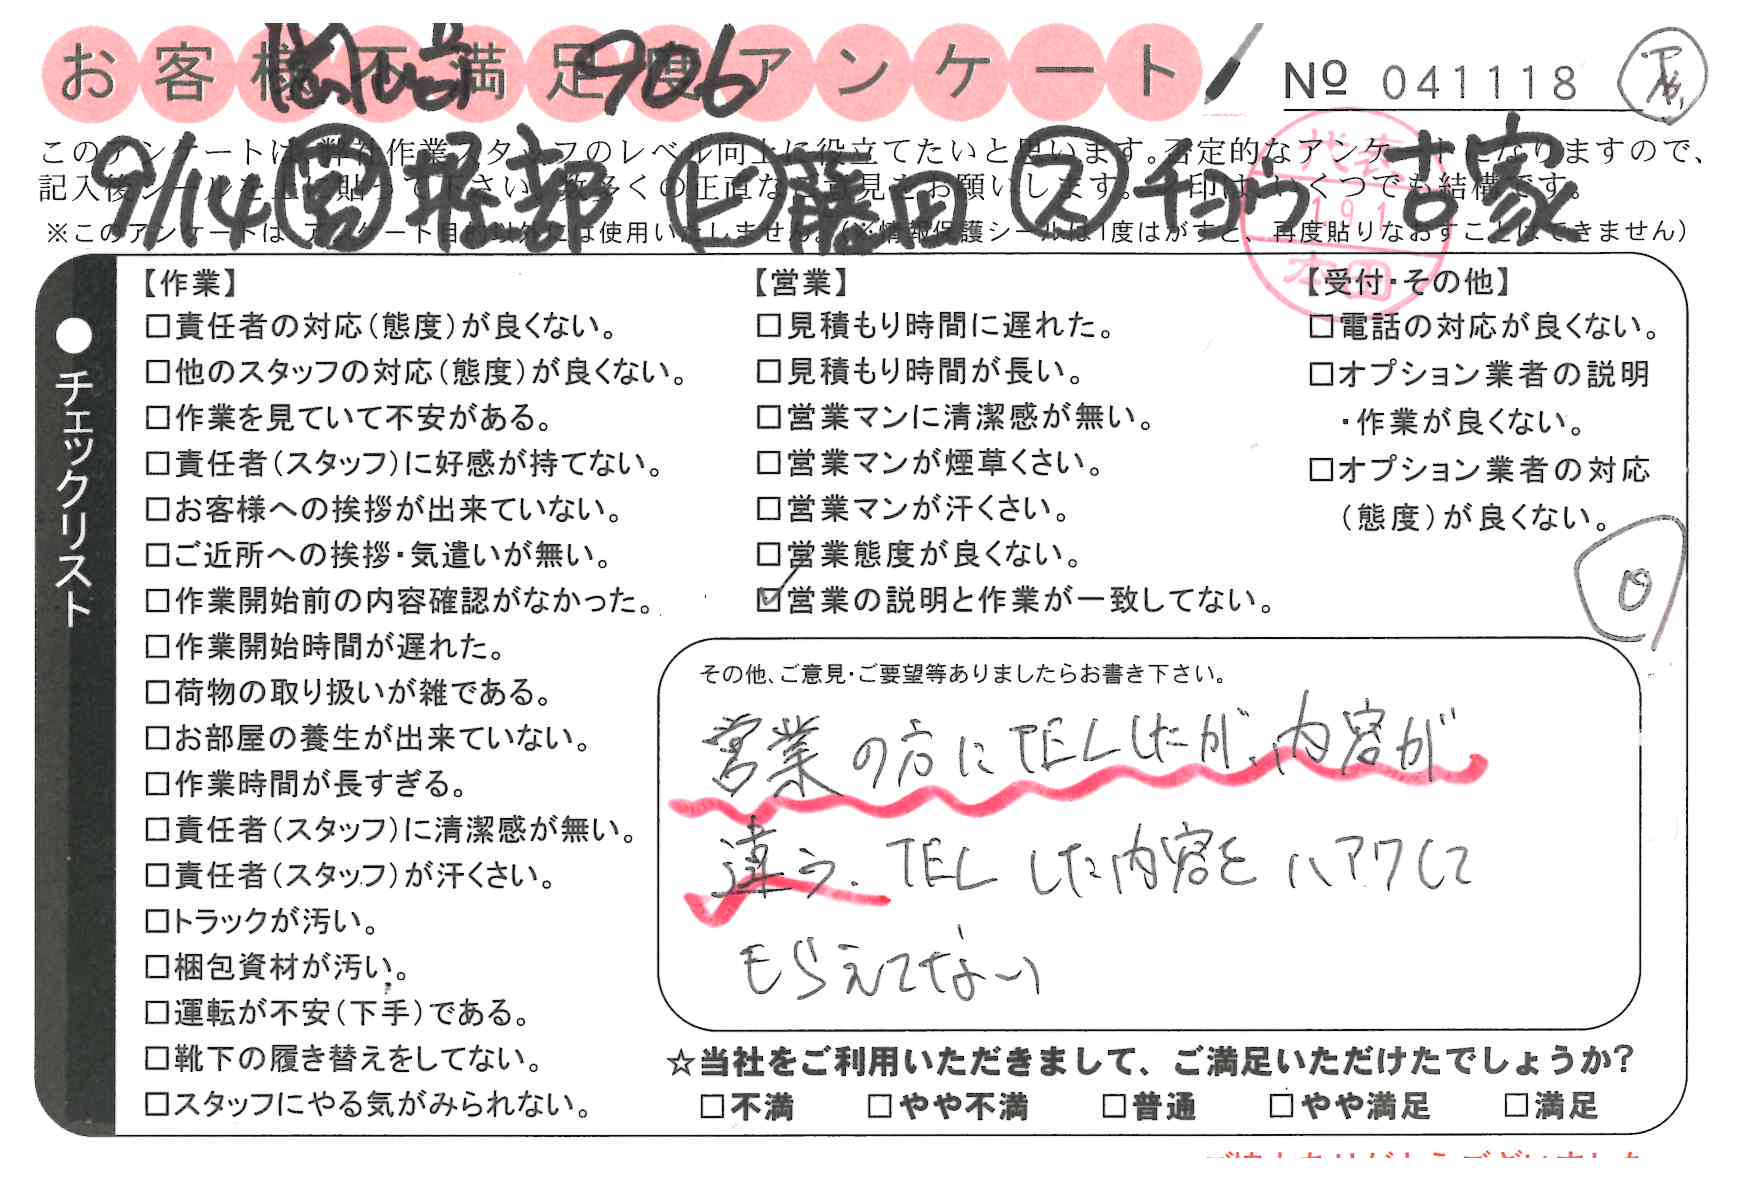 お客様不満足度アンケート
906
№ 041118
このアンケートは、弊社作業スタッフのレベル向上に役立てたいと思います。否定的なアンケートになりますので、
記入後シールを上に貼って下さい。数多くの正直なご意見をお願いします。✓印は、いくつでも結構です。
※このアンケートは、アンケート目的以外には使用いたしません。(※情報保護シールは1度はがすと、再度貼りなおすことはできません)
9/14 営 堀部 ヒ 藤田 ス チョウ 古家
代表
191
本田
●チェックリスト
【作業】
□責任者の対応(態度)が良くない。
□他のスタッフの対応(態度)が良くない。
□作業を見ていて不安がある。
□責任者(スタッフ)に好感が持てない。
□お客様への挨拶が出来ていない。
□ご近所への挨拶・気遣いが無い。
□作業開始前の内容確認がなかった。
□作業開始時間が遅れた。
□荷物の取り扱いが雑である。
□お部屋の養生が出来ていない。
□作業時間が長すぎる。
□責任者(スタッフ)に清潔感が無い。
□責任者(スタッフ)が汗くさい。
□トラックが汚い。
□梱包資材が汚い。
□運転が不安(下手)である。
□靴下の履き替えをしてない。
□スタッフにやる気がみられない。
【営業】
□見積もり時間に遅れた。
□見積もり時間が長い。
□営業マンに清潔感が無い。
□営業マンが煙草くさい。
□営業マンが汗くさい。
□営業態度が良くない。
☑営業の説明と作業が一致してない。
【受付・その他】
□電話の対応が良くない。
□オプション業者の説明
・作業が良くない。
□オプション業者の対応
(態度)が良くない。
その他、ご意見・ご要望等ありましたらお書き下さい。
営業の方にTELしたが、内容が
違う。TELした内容をハアクして
もらえてない
☆当社をご利用いただきまして、ご満足いただけたでしょうか?
□不満 □やや不満 □普通 □やや満足 □満足